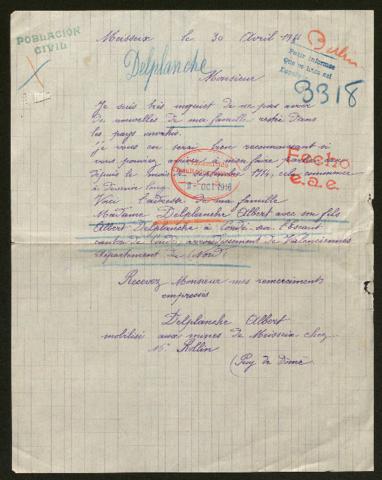 POBLACIÓN
CIVIL
Messeix le 30 Avril 1916
Berlin
Delplanche
Pour informer
3318
Monsieur
Je suis très inquiet de ne pas avoir
de nouvelles de ma famille restée dans
les pays envahis
je vous en serai bien reconnaissant si
vous pouviez arriver à m'en faire
depuis le mois de Septembre 1914, cela commence
à devenir long
Fecho
e.a.e.
OCT 1916
Voici l'adresse de ma famille
Madame Delplanche Albert avec son fils
Albert Delplanche à Condé sur l'Escaut
canton de Condé, arrondissement de Valenciennes
département du Nord
Recevez Monsieur mes remerciments
empressés
Delplanche Albert
mobilisé aux mines de Messeix chez
Mr Rollin
(Puy de Dôme